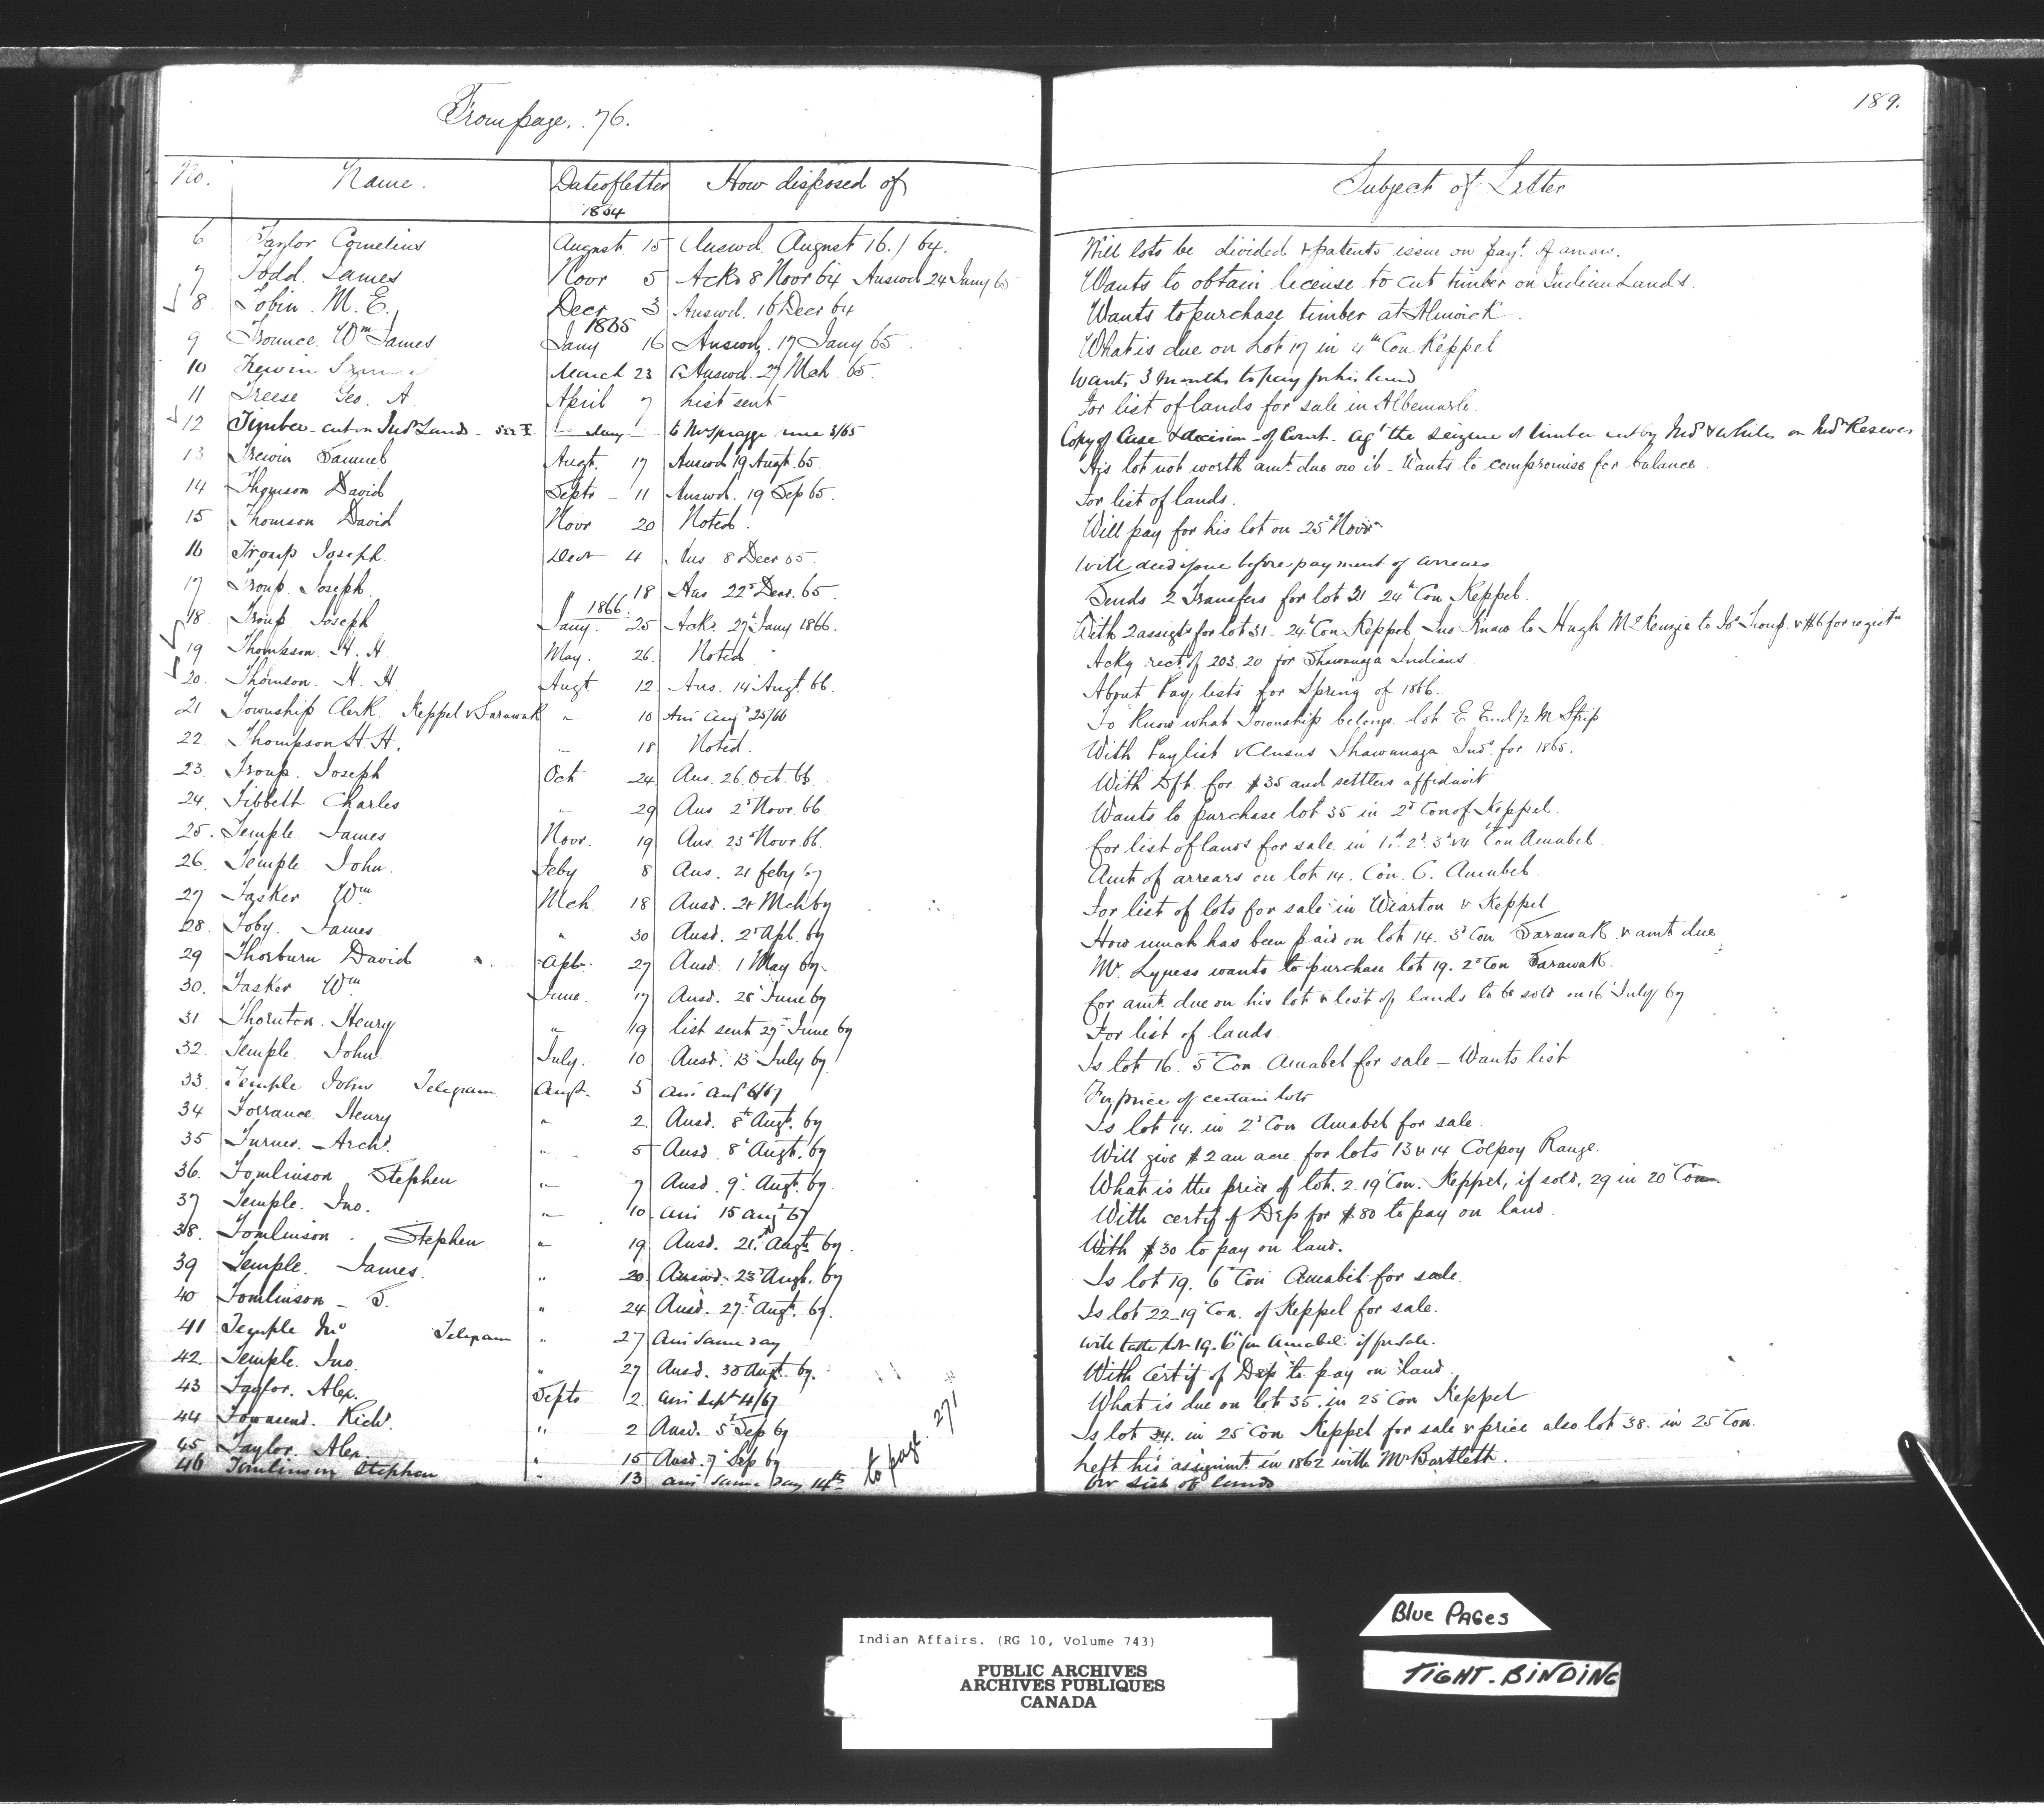 From page. 76.
189.
No. Name. Date of letter How disposed of Subject of Letter
1864
6 Taylor Cornelius August 15 Answd. August 16./64. Will lots be divided & patents issue on payt. of arrears.
7 Todd James Novr 5 Ackd 8 Novr 64 Answd 24 Jany 65 Wants to obtain license to cut timber on Indian Lands.
8. Tobin. M. E. Decr 3 Answd. 16 Decr 64 Wants to purchase timber at Alnwick.
1865
9 Trounce. Wm James Jany 16 Answd. 17 Jany 65. What is due on Lot 17 in 4th Con Keppel
10 Trewin March 23 Answd. 27 Mch 65. Wants 3 months to pay for his land
11 Treese Geo. A. April 7 List sent For list of lands for sale in Albemarle.
12 Timber cut on Ind Lands - see I. Jany to Mr Spragge June 3/65 Copy of Case & decision of Court. agt the seizure of timber cut by Inds & whites on Ind Reserves
13 Trewin Samuel Augt. 17 Answd 19 Augt. 65. His lot not worth amt. due on it - Wants to compromise for balance.
14 Thomson David Septr - 11 Answd. 19 Sep 65. For list of lands.
15 Thomson David Novr 20 Noted. Will pay for his lot on 25 Novr
16 Troup Joseph Decr 4 Ans. 8 Decr 65. Will deed issue before payment of arrears
17 Troup. Joseph. " 18 Ans 22d Decr. 65. Sends 2 Transfers for lot 31 24th Con Keppel.
1866.
18. Troup Joseph Jany. 25 Ackd. 27th Jany 1866. With 2 assigts for lot 31 - 24th Con Keppel, Jas Knaw to Hugh McKenzie to Js Troup. & $6 for registn
19 Thompson. H. H. May. 26. Noted Ackg rect. of 203.20 for Shawanaga Indians.
20. Thomson. H. H. Augt 12 Ans. 14 Augt. 66. About Pay lists for Spring of 1866.
21 Township Clerk. Keppel & Sarawak " 10 Ans Augt 25/66 To Know what Township belongs lot E End 1/2 M Strip.
22. Thompson H. H. " 18 Noted. With Paylist & Census Shawanaga Inds for 1865.
23. Troup. Joseph Oct 24 Ans. 26 Oct. 66. With Dft. for $35 and settlers affidavit
24. Tibbett Charles " 29 Ans 2d Novr. 66. Wants to purchase lot 35 in 2d Con of Keppel.
25. Temple. James Novr. 19 Ans. 23d Novr. 66. For list of lands for sale in 1st 2d 3d & 4th Con Amabel.
26. Temple. John. Feby 8 Ans. 21 Feby 67 Amt of arrears on lot 14. Con. C. Amabel.
27 Tasker Wm Mch. 18 Ansd. 21 Mch 67 For list of lots for sale in Wiarton & Keppel
28. Toby. James. " 30 Ansd. 2d Apl. 67 How much has been paid on lot 14. 3d Con Sarawak. & amt due
29 Thorburn David Apl. 27 Ansd. 1 May 67. Mr. Lyness wants to purchase lot 19. 2d Con Sarawak.
30. Tasker Wm June. 17 Ansd. 25 June 67 For amt. due on his lot & list of lands to be sold on 16 July 67
31 Thornton. Henry " 19 list sent 27th June 67 For list of lands.
32. Temple. John. July. 10 Ansd. 13 July 67 Is lot 16. 5th Con. Amabel for sale - Wants list
33. Temple John Telegram Augt. 5 Ans Augt 6/67 For price of certain lots
34 Torrance. Henry " 2. Ansd. 8th Augt. 67 Is lot 14. in 2d Con Amabel for sale.
35 Turner. Archd. " 5 Ansd. 8th Augt. 67 Will give $2 an acre. for lots 13 & 14 Colpoy Range.
36. Tomlinson Stephen " 7 Ansd. 9th Augt. 67 What is the price of lot. 2. 19th Con. Keppel, if sold, 29 in 20th Con
37 Temple. Jno. " 10. Ans 15 Augt 67 With certif of Dep for $80 to pay on land.
38. Tomlinson. Stephen " 19 Ansd. 21st Augt. 67. With $30 to pay on land.
39 Temple. James. " 20. Answd. 23d Augt. 67 Is lot 19. 6th Con Amabel for sale.
40 Tomlinson - S. " 24 Ansd. 27th Augt. 67. Is lot 22 - 19th Con. of Keppel for sale.
41 Temple Jno Telegram " 27 Ans same day Will take lot 19. 6th Con Amabel. if for sale.
42. Temple. Jno. " 27 Ansd. 30 Augt. 67. With Certif of Dep to pay on land.
43 Taylor. Alex. Septr 2. Ans Sept 4/67 What is due on lot 35. in 25 Con Keppel
44 Townsend. Richd. " 2 Ansd. 5th Sep 67 Is lot 34. in 25th Con Keppel for sale & price also lot 38. in 25th Con.
45. Taylor. Alex. " 15 Ansd. 7 Sep 67 Left his assignmt. in 1862 with Mr Bartlett.
46 Tomlinson Stephen " 13 Ans same day 14th For list of lands
to page. 271
Blue PAGES
TIGHT-BINDING
Indian Affairs. (RG 10, Volume 743)
PUBLIC ARCHIVES
ARCHIVES PUBLIQUES
CANADA